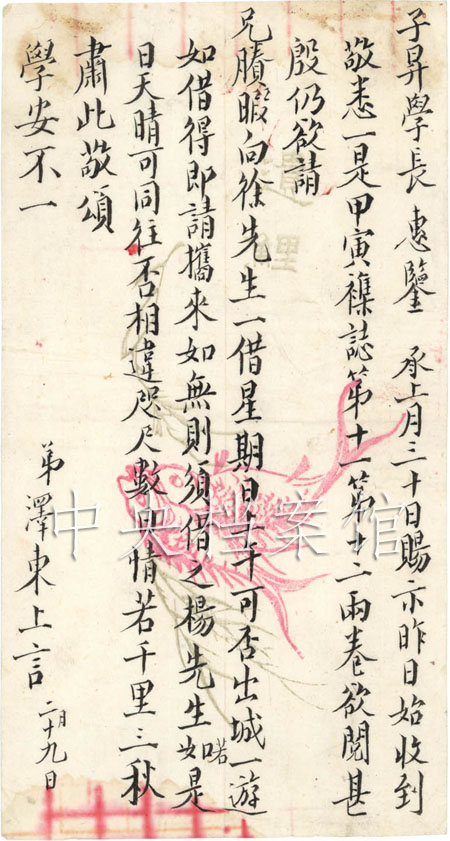 子昇學長 惠鑒 承上月三十日賜示昨日始收到
敬悉一是甲寅雜誌第十一第十二兩卷欲閱甚
殷仍欲請
兄賸暇向徐先生一借星期日上午可否出城一遊
如借得即請攜來如無則須借之楊先生如是
日天晴可同往否相違咫尺數日情若千里三秋
肅此敬頌
學安不一
弟澤東上言 二月十九日
中央档案馆